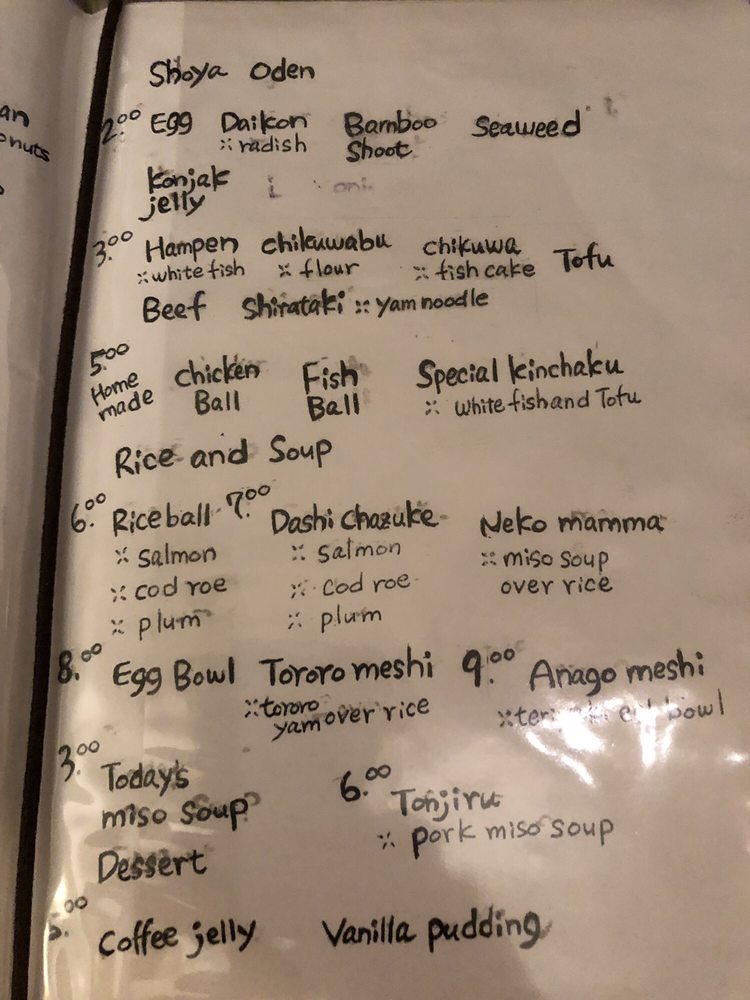 an
onuts
Shoya Oden
2.00 Egg Daikon Bamboo Shoot Seaweed
※radish
Konjak jelly
3.00 Hampen chikuwabu chikuwa Tofu
※white fish ※ flour ※ fish cake
Beef Shirataki ※ yam noodle
5.00
Home made chicken Ball Fish Ball Special kinchaku
※ white fish and Tofu
Rice and Soup
6.00 Rice ball 7.00 Dashi Chazuke Neko mamma
※ salmon ※ salmon ※ miso soup
※ cod roe ※ cod roe over rice
※ plum ※ plum
8.00 Egg Bowl Tororo meshi 9.00 Anago meshi
※tororo yam over rice ※teriyaki eel bowl
3.00 Today's miso soup 6.00 Tonjiru
※ pork miso soup
Dessert
5.00 Coffee jelly Vanilla pudding